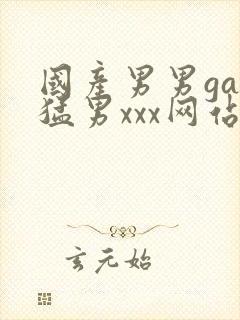 國産男男ga
猛男xxx网佔
玄元始